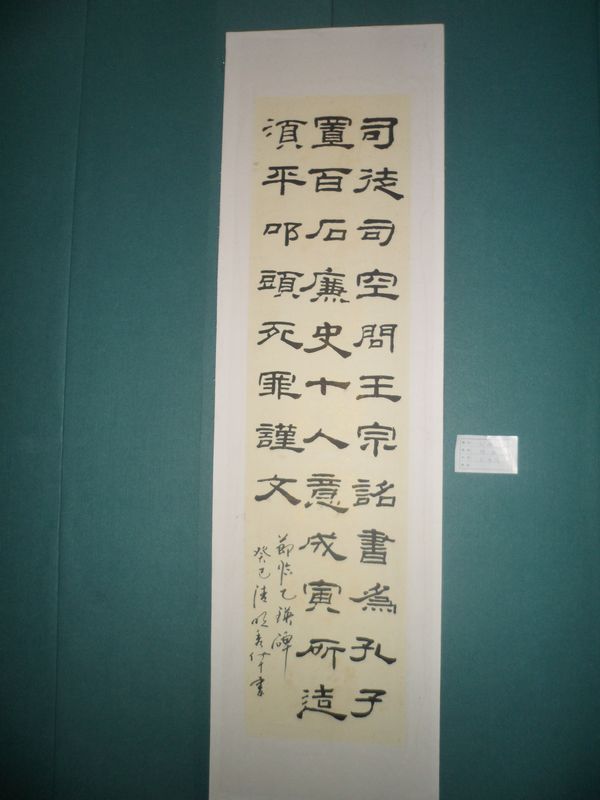 司徒司空問王宗詺書為孔子
置百石廉史十人意成寅所造
須平叩頭死罪謹文
節臨乙瑛碑
癸巳清明